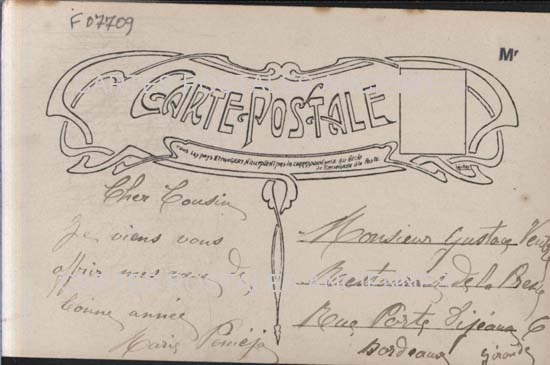 F07709
Mr
CARTE POSTALE
TOUS LES PAYS ETRANGERS N'ACCEPTENT PAS LA CORRESPONDANCE AU RECTO
Se renseigner à la Poste
Cher Cousin
Je viens vous
offrir mes vœux de
bonne année
Marie
Monsieur Gustave
de la
Rue Porte Dijeaux
Bordeaux Gironde